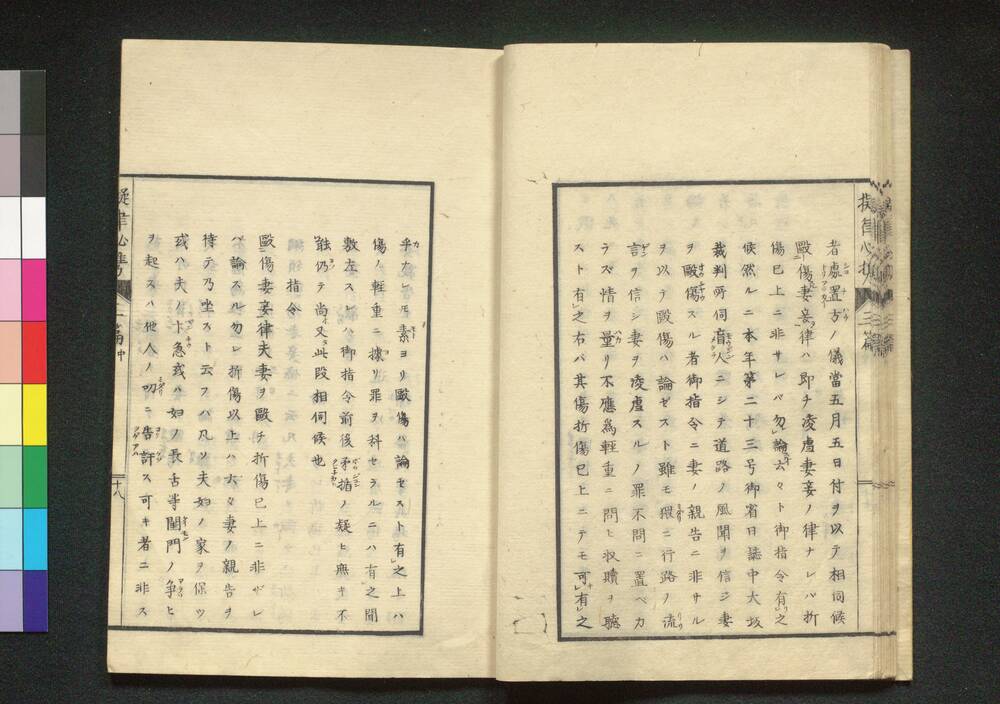 擬律必携 三篇
者處置方ノ儀當五月五日付ヲ以テ相伺候
毆傷妻妾律ハ即チ凌虐妻妾ノ律ナレバ折
傷已上ニ非サレバ勿論云々ト御指令有之
候然ルニ本年第二十三号御省日誌中大坂
裁判所伺盲人ニシテ道路ノ風聞ヲ信シ妻
ヲ毆傷スル者御指令ニ妻ノ親告ニ非サル
ヲ以テ毆傷ハ論ゼスト雖モ猥ニ行路ノ流
言ヲ信シ妻ヲ凌虐スルノ罪不問ニ置ベカ
ラズ情ヲ量リ不應爲輕重ニ問ヒ収贖ヲ聽
スト有之右バ其傷折傷已上ニテモ可有之
乎ナレモ素ヨリ毆傷ハ論セスト有之上ハ
傷ノ輕重ニ據リ罪ヲ科セラルニハ有之間
敷左スレハ御指令前後矛楯ノ疑ヒ無キ不
能仍テ尚又此段相伺候也
指令
毆傷妻妾律夫妻ヲ毆チ折傷已上ニ非ザレ
バ論スル勿レ折傷以上ハ云々妻ノ親告ヲ
待テ乃坐スト云フハ凡ソ夫妇ノ家ヲ保ツ
或ハ夫ノ卞急或ハ妇ノ長舌等閨門ノ爭ヒ
ヲ起スハ他人ノ叨ニ告訐ス可キ者ニ非ス
十八